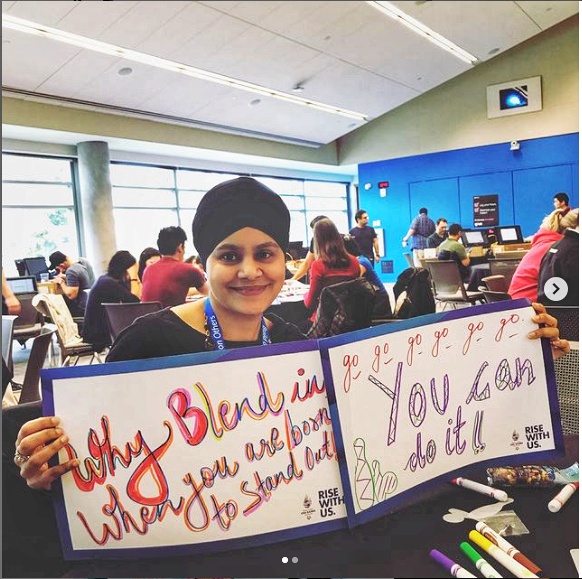 on Others
Why Blend in
When you are born
to Stand Out!
RISE
WITH
US.
go go go go go go
You can
do it!!
RISE
WITH
US.